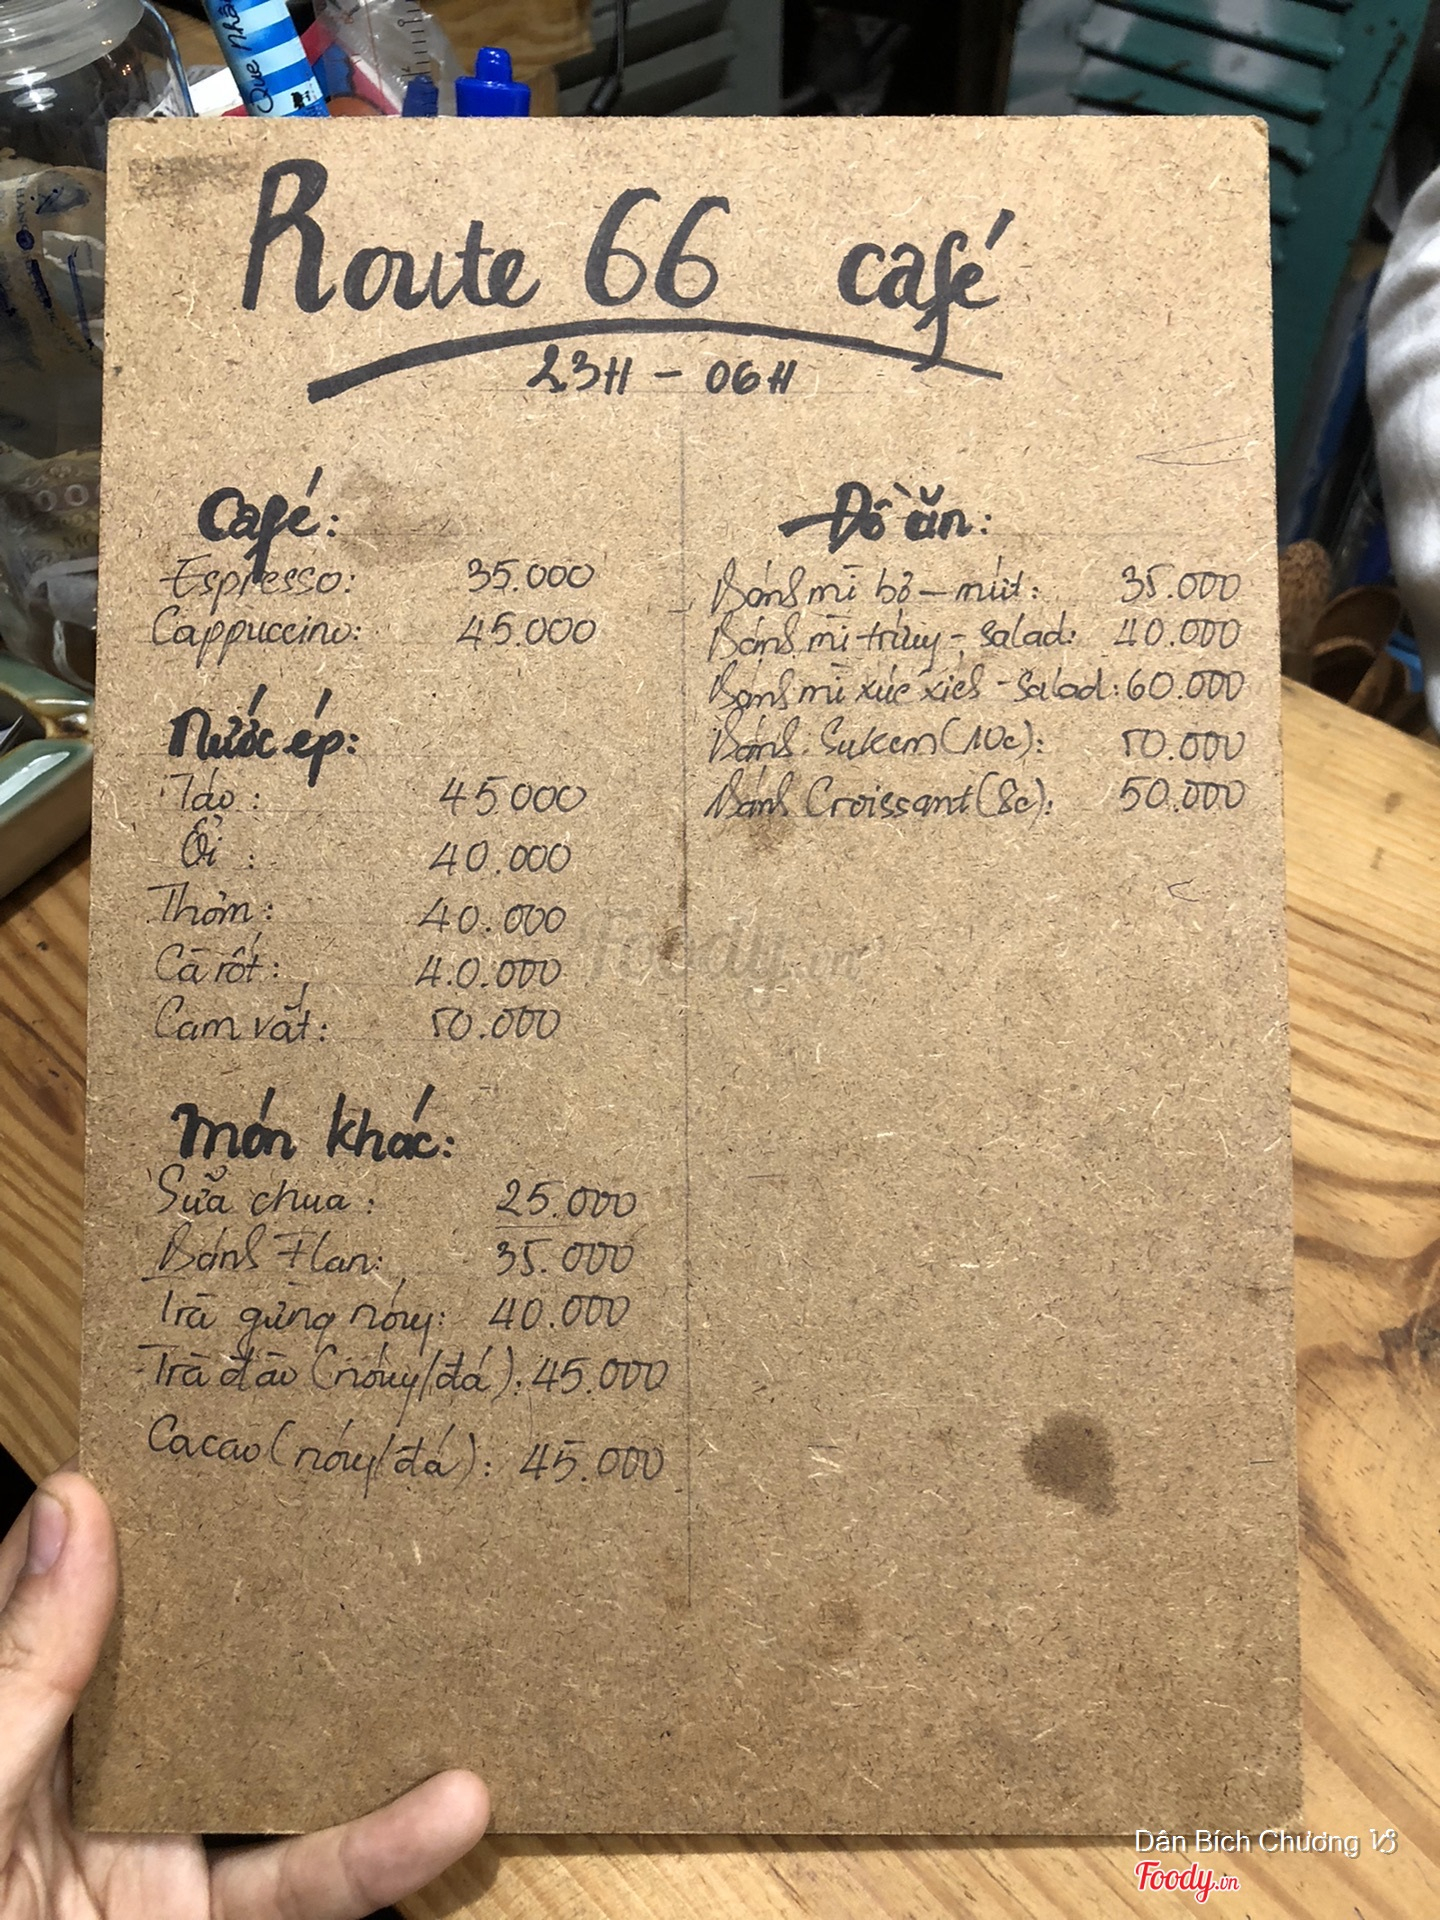 Que nhân
Route 66 café
23H - 06H
Café:
Espresso: 35.000
Cappuccino: 45.000
Nước ép:
Táo: 45.000
Ổi: 40.000
Thơm: 40.000
Cà rốt: 40.000
Cam vắt: 50.000
Món khác:
Sữa chua: 25.000
Bánh Flan: 35.000
Trà gừng nóng: 40.000
Trà đào (nóng/đá): 45.000
Cacao (nóng/đá): 45.000
Đồ ăn:
Bánh mì bò - mứt: 35.000
Bánh mì trứng - salad: 40.000
Bánh mì xúc xích - Salad: 60.000
Bánh Sukem (10c): 50.000
Bánh Croissant (8c): 50.000
Foody.vn
Dân Bích Chương
Foody.vn